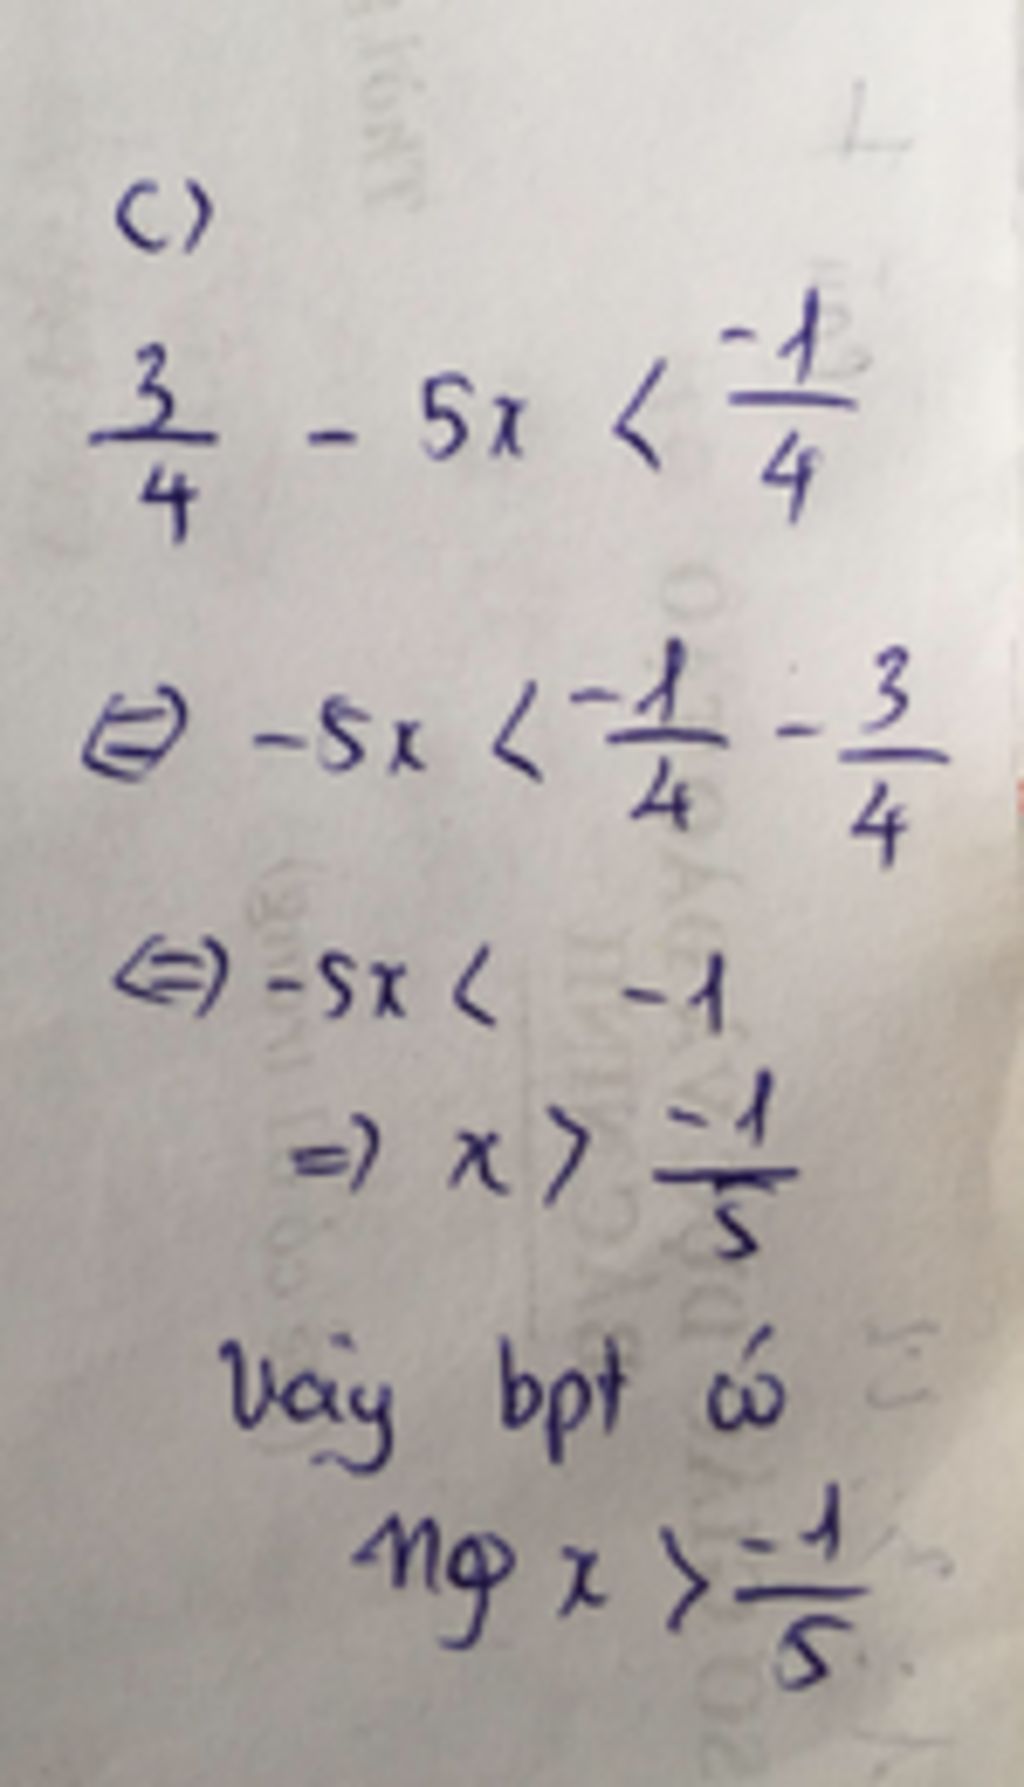 c)
3/4 - 5x < -1/4
<=> -5x < -1/4 - 3/4
<=> -5x < -1
=> x > -1/5
Vậy bpt có
ngo x > -1/5